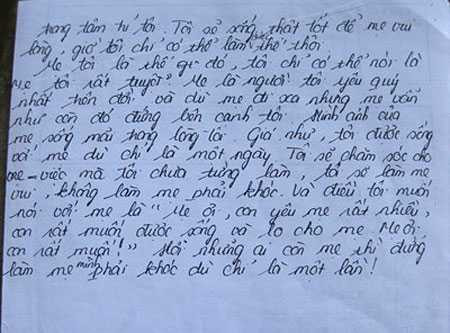 trong tâm trí tôi. Tôi sẽ sống thật tốt để mẹ vui
lòng, giờ tôi chỉ có thể làm thế thôi.
Mẹ tôi là thế gì đó, tôi chỉ có thể nói là
Mẹ tôi rất tuyệt. Mẹ là người tôi yêu quý
nhất trên đời. và dù mẹ đi xa nhưng mẹ vẫn
như còn đó đứng bên cạnh tôi. Hình ảnh của
mẹ sống mãi trong lòng tôi. Giá như, tôi được sống
với mẹ dù chỉ là một ngày. Tôi sẽ chăm sóc cho
mẹ - việc mà tôi chưa từng làm, tôi sẽ làm mẹ
vui, không làm mẹ phải khóc. Và điều tôi muốn
nói với mẹ là "Mẹ ơi, con yêu mẹ rất nhiều,
con rất muốn được sống và lo cho mẹ. Mẹ ơi
con rất muốn!" Hỡi những ai còn mẹ thì đừng
làm mẹ mình phải khóc dù chỉ là một lần!